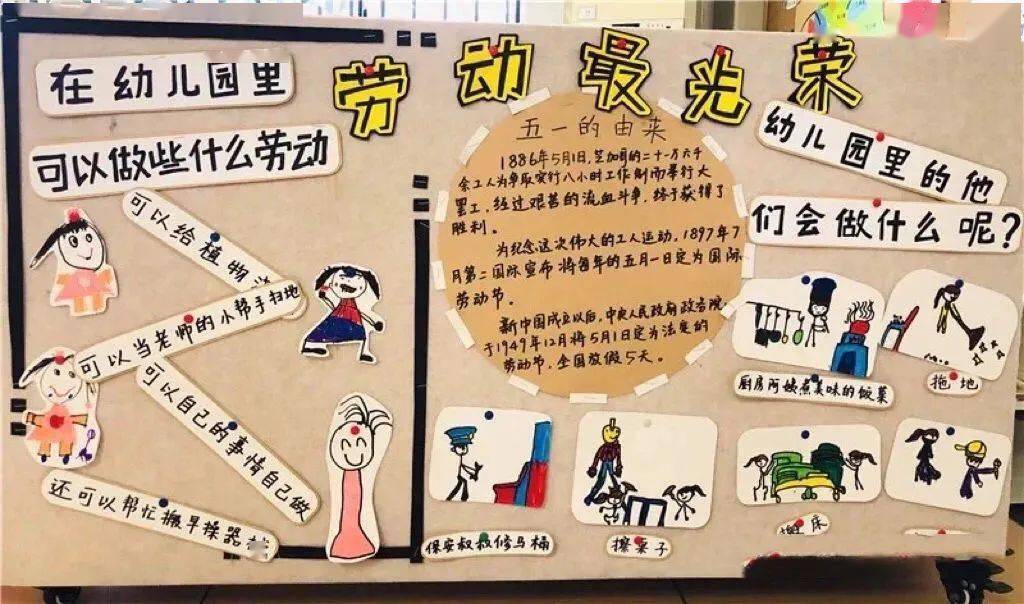 劳动最光荣
在幼儿园里
可以做些什么劳动
可以给植物
可以当老师的小帮手扫地
可以自己的事情自己做
还可以帮忙搬早操器
五一的由来
1886年5月1日,芝加哥的二十一万六千
余工人为争取实行八小时工作制而举行大
罢工,经过艰苦的流血斗争,终于获得了
胜利。
为纪念这次伟大的工人运动,1897年7
月第二国际宣布将每年的五月一日定为国际
劳动节。
新中国成立以后,中央人民政府政务院
于1949年12月将5月1日定为法定的
劳动节,全国放假5天。
幼儿园里的他
们会做什么呢?
厨房阿姨煮美味的饭菜
拖地
保安叔叔修马桶
擦桌子
搬床